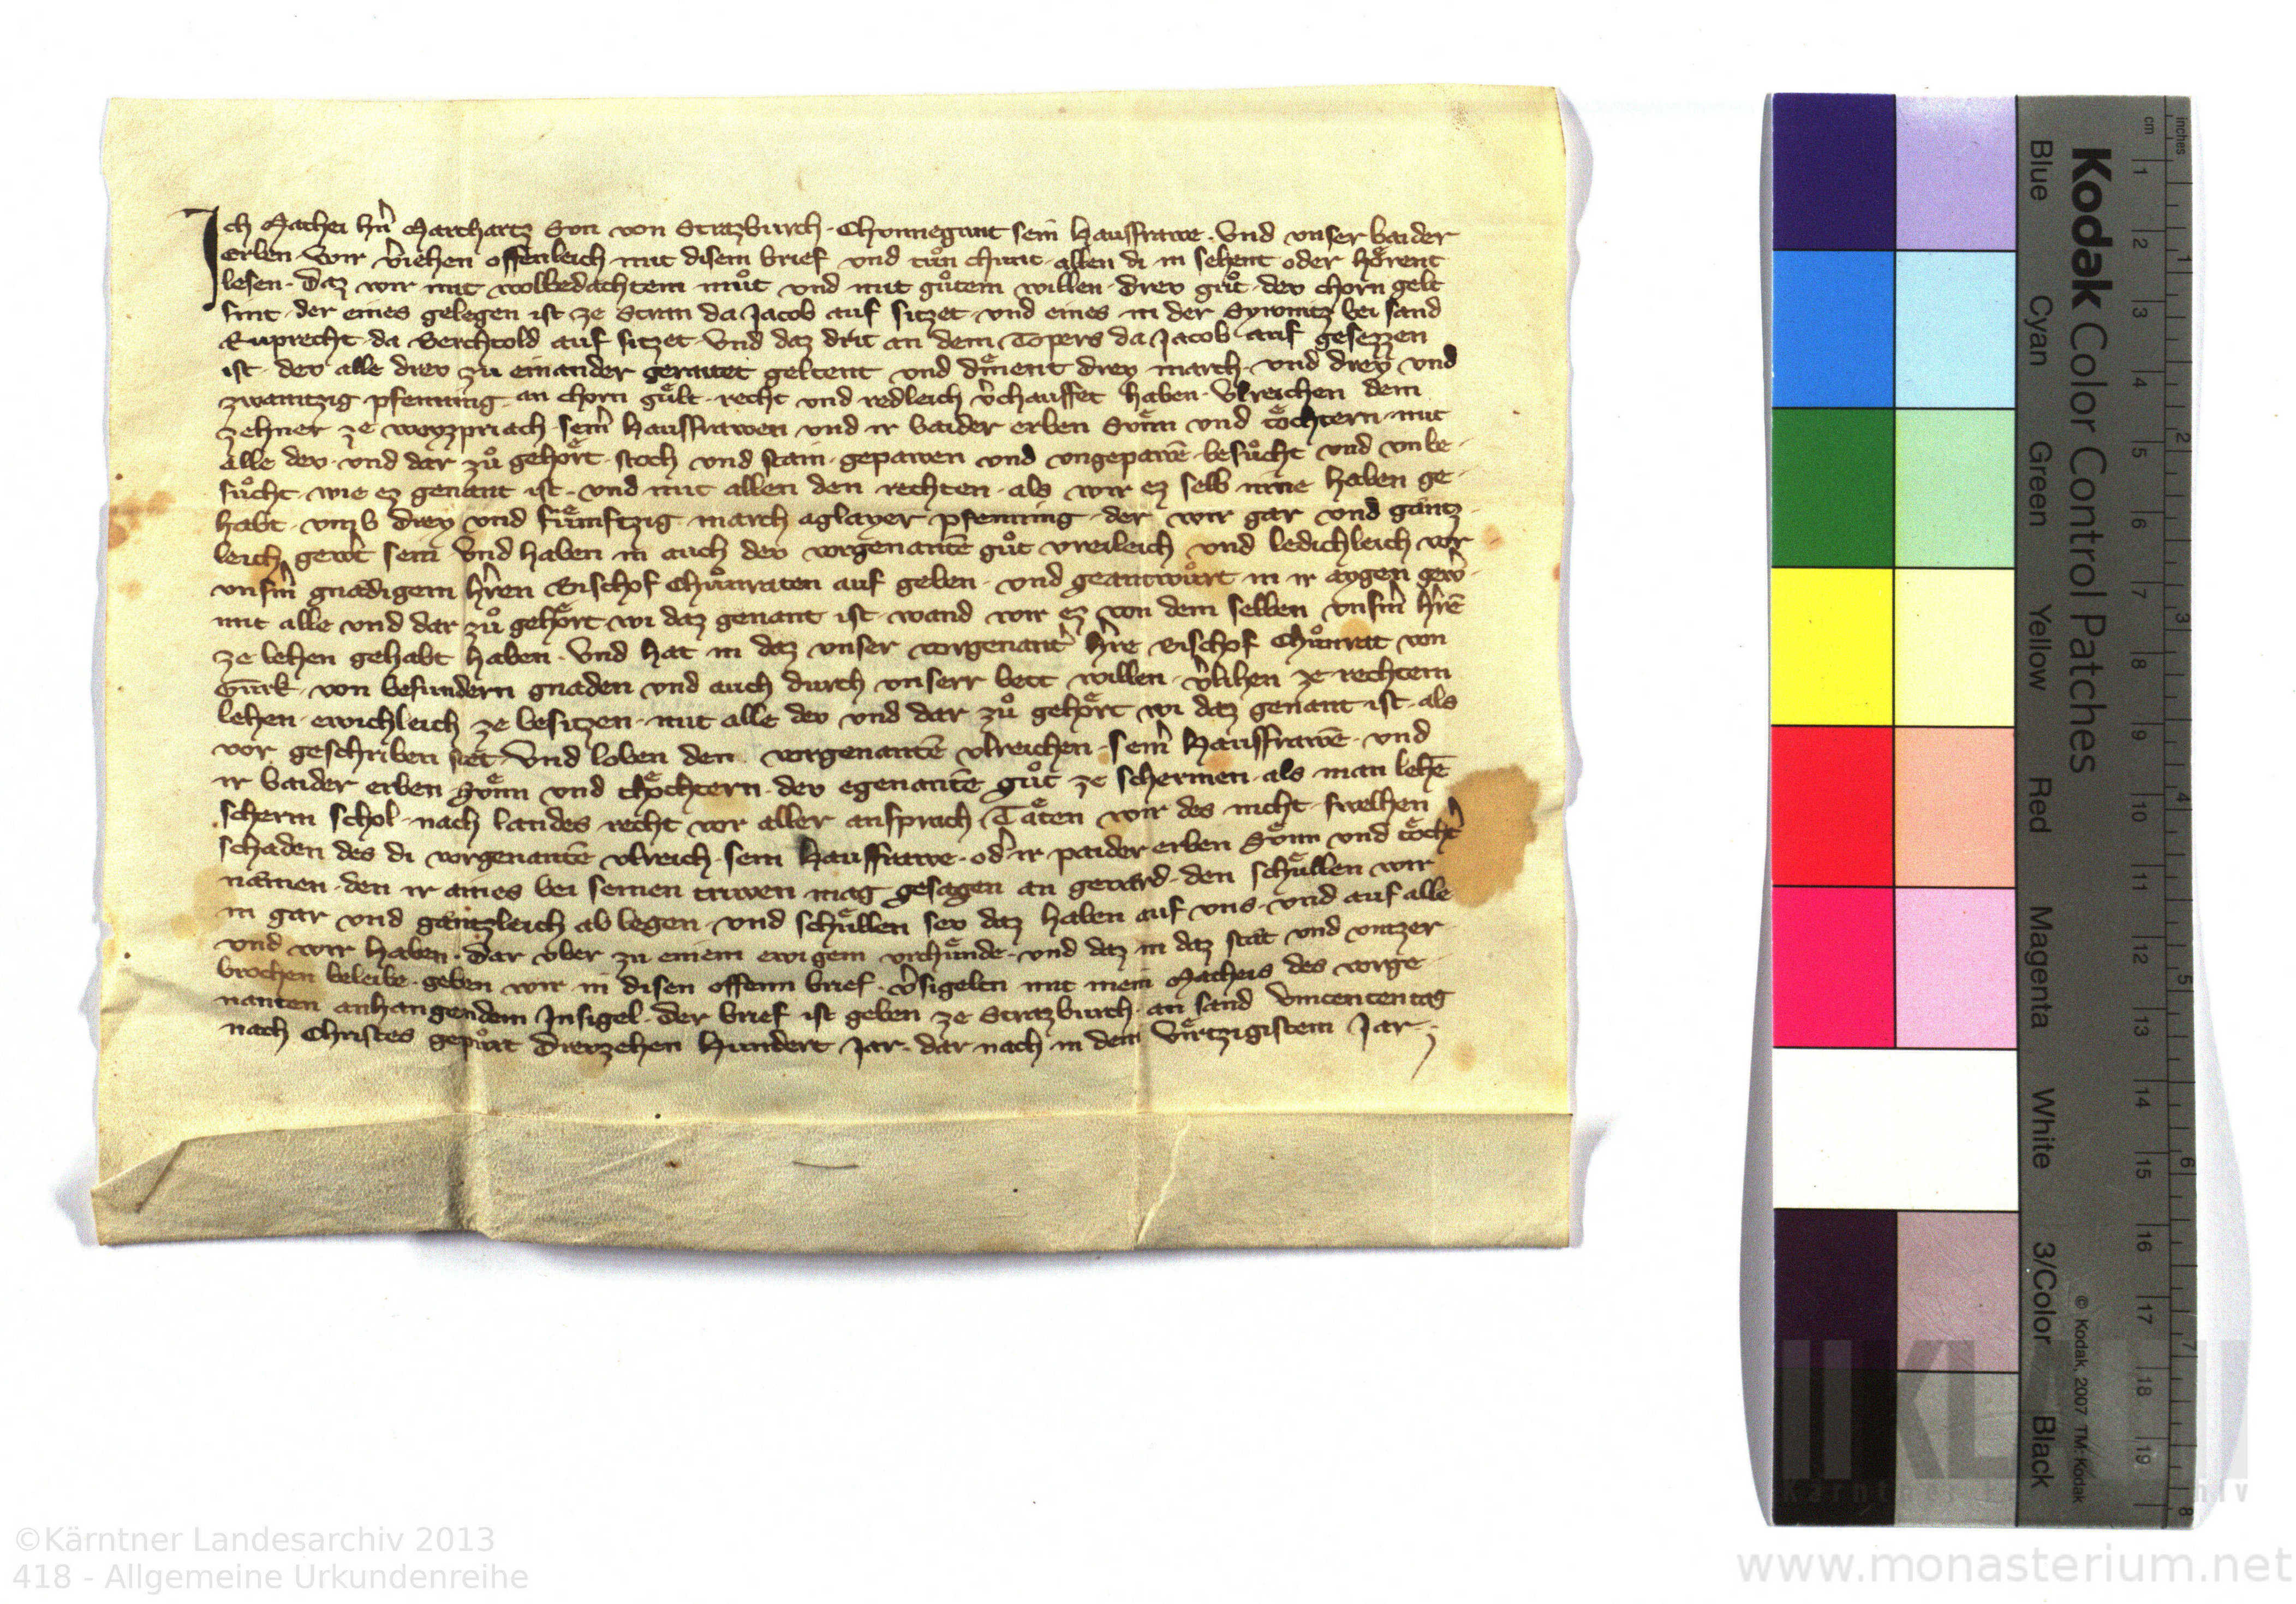 Ich Mathei hn̄ Marchartz Sun von Strazburch. Chunnegunt sein hausfrawe. Vnd vnser baider
erben. Wir v̄iehen offenleich mit disem brief vnd tůn chunt allen di in sehent oder hörent
lesen. Daz wir mit wolbedachtem můt vnd mit gůtem willen. drev gůt. dev chorn gelt
sint. der eines gelegen ist ze Stran da Jacob auf sitzet. vnd eines in der Syrnitz bei sand
Ruprecht. da Berchtold auf sitzet. Vnd daz drit an dem Topers da Jacob auf gesezzen
ist. dev alle drev zu einander geraitet geltent vnd dinent drey march. vnd drey vnd
zwaintzig pfenning. an chorn gült. recht vnd redleich v̄chauffet haben. Vlreichen dem
zehner ze weyzpriach. sein̄ hausfrawen vnd ir baider erben Sünn vnd töchtern. mit
alle dev. vnd dar zů gehört. stoch vnd stain. gepawen vnd vngepawē. besůcht vnd vnbe-
sůcht. wie ez genant ist. vnd mit allen den rechten. als wir ez selb inne haben ge-
habt. vmb drey vnd fümftzig march aglayer pfenning. der wir gar vnd gäntz-
leich gew̄t sein. Vnd haben in auch dev vorgenantē gůt vreileich vnd ledichleich vor
vnsm̄ gnädigem hr̄en Bischof Chůnraten auf geben. vnd geantwůrt in ir aygen gew̄
mit alle vnd dar zů gehört wi daz genant ist. wand wir ez von dem selben vnsm̄ hr̄ē
ze lehen gehabt haben. Vnd hat in daz vnser vorgenant̄ hr̄re Bischof Chůnrat von
Gurk. von besundern gnaden vnd auch durch vnserr bett willen. v̄lihen ze rechtem
lehen. ewichleich ze besitzen. mit alle dev vnd dar zů gehört wi daz genant ist. als
vor geschriben stet. Vnd loben den vorgenantē vlreichen. sein̄ hausfrawē. vnd
ir baider erben Sünn vnd thöchtern. dev egenantē gůt ze schermen. als man lehē
scherm schol. nach landes recht vor aller ansprach. Täten wir des nicht. swelhen
schaden des di vorgenantē vlreich. sein hausfrawe. od̄ ir paider erben Sünn vnd töcht̄
nämen. den ir aines bei seinen triwen mag gesagen an geuärd. den schüllen wir
in gar vnd gäntzleich ab legen. vnd schüllen sev daz haben auf vns. vnd auf alle
vnd wir haben. Dar vber zu einem ewigem vrchünde. vnd daz in daz stät vnd vnzer-
brochen beleibe. geben wir in disen offenn brief. v̄sigelten mit mein Matheis des vorge-
nanten anhangendem Insigel. Der brief ist geben ze Strazburch. an sand Vincencentag
nach Christes gepůrt Drevzehen Hundert Jar. dar nach in dem Viertzigistem Jar.
Kodak Color Control Patches
Blue Cyan Green Yellow Red Magenta White 3/Color Black
© Kodak, 2007 TM: Kodak
cm 1 2 3 4 5 6 7 8 9 10 11 12 13 14 15 16 17 18 19
inches 1 2 3 4 5 6 7 8
©Kärntner Landesarchiv 2013
418 - Allgemeine Urkundenreihe
www.monasterium.net